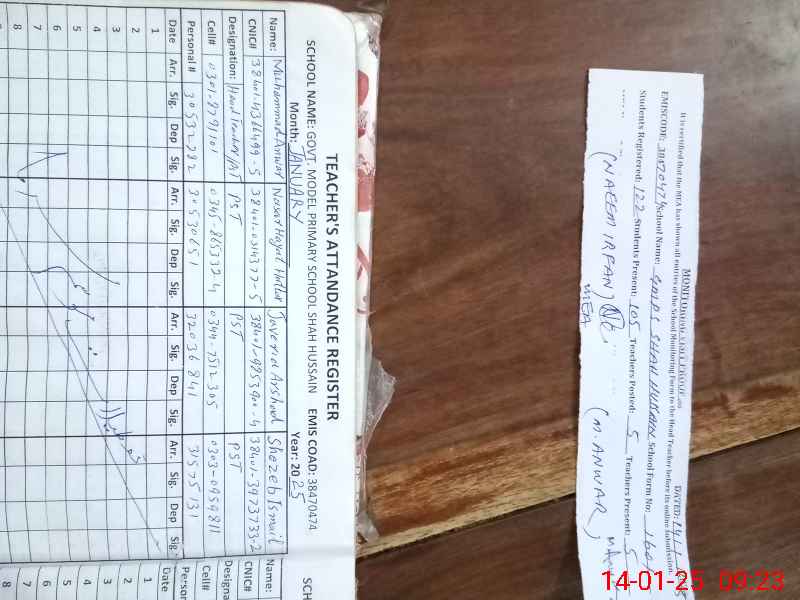 TEACHER'S ATTANDANCE REGISTER
SCHOOL NAME: GOVT. MODEL PRIMARY SCHOOL SHAH HUSSAIN EMIS COAD: 38470474
Month: JANUARY Year: 2025
Name: Muhammad Anwar Nasar Hayat Javeria Arshad Shozeb Ismail Name:
CNIC# 38401-4366499-5 38401-0314372-5 38401-9853900-4 38401-3973733-2 CNIC#
Designation: Head Teacher PST PST PST
Cell# 0301-8791101 0345-8653324 0344-7512305 0303-0959811 Cell#
Personal # 30532782 30530651 32036841 31575131
Date Arr. Sig. Dep Sig. Arr. Sig. Dep Sig. Arr. Sig. Dep Sig. Arr. Sig Dep Sig Date
1 1
2 2
3 3
4 4
5 5
6 6
7 7
8 8
MONITORING VISIT PROOF DATED:
It is certified that the MEA has shown all entries of the School Monitoring Form to the Head Teacher before its online submission.
EMISCODE: 38470474 School Name: GMPS SHAH HUSSAIN School Form No:
Students Registered: 122 Students Present: 105 Teachers Posted: 5 Teachers Present: 5
(NAEEM IRFAN) (M. ANWAR)
MEA
14-01-25 09:23